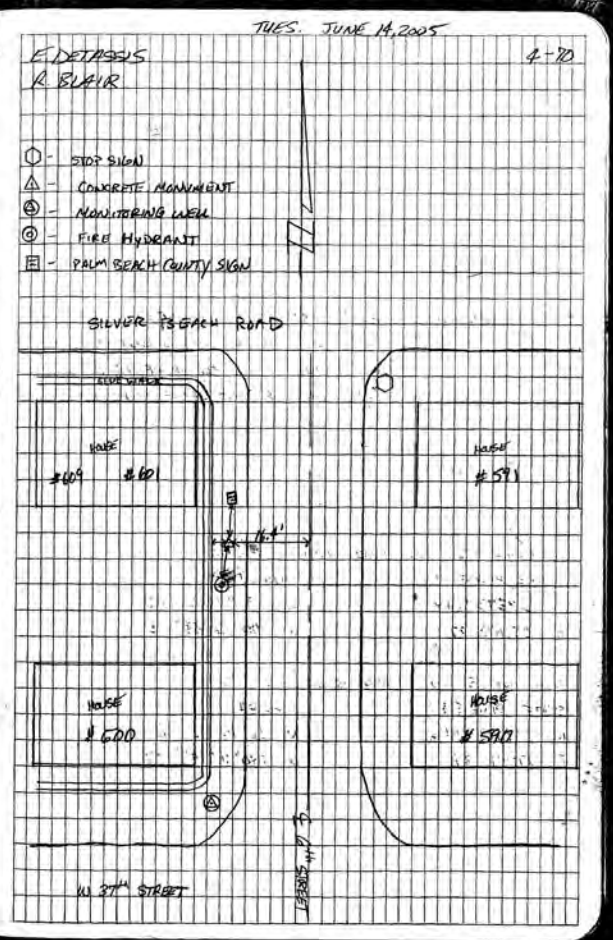 TUES. JUNE 14, 2005
4-70
E. DETASSIS
R. BLAIR
- STOP SIGN
- CONCRETE MONUMENT
- MONITORING WELL
- FIRE HYDRANT
- PALM BEACH COUNTY SIGN
SILVER BEACH ROAD
SIDE WALK
HOUSE
#609 #601
HOUSE
#591
16.4'
HOUSE
#600
HOUSE
#590
℄ 6TH STREET
W 37TH STREET